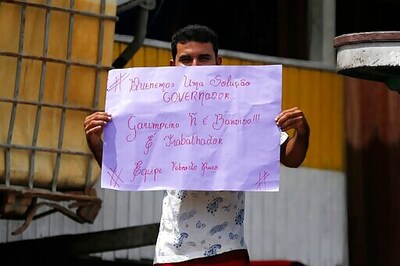 Queremos Uma Solução
GOVERNADOR
Garimpeiro ñ é Bandido!!!
É Trabalhador
Equipe